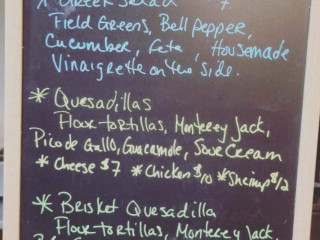 * Greek Salad 7
Field Greens, Bell pepper,
Cucumber, feta, Housemade
Vinaigrette on the side.
* Quesadillas
Flour tortillas, Monterey Jack,
Pico de Gallo, Guacamole, Sour Cream
* Cheese $7 * Chicken $10 * Shrimp $12
* Brisket Quesadilla
Flour tortillas, Monterey Jack,